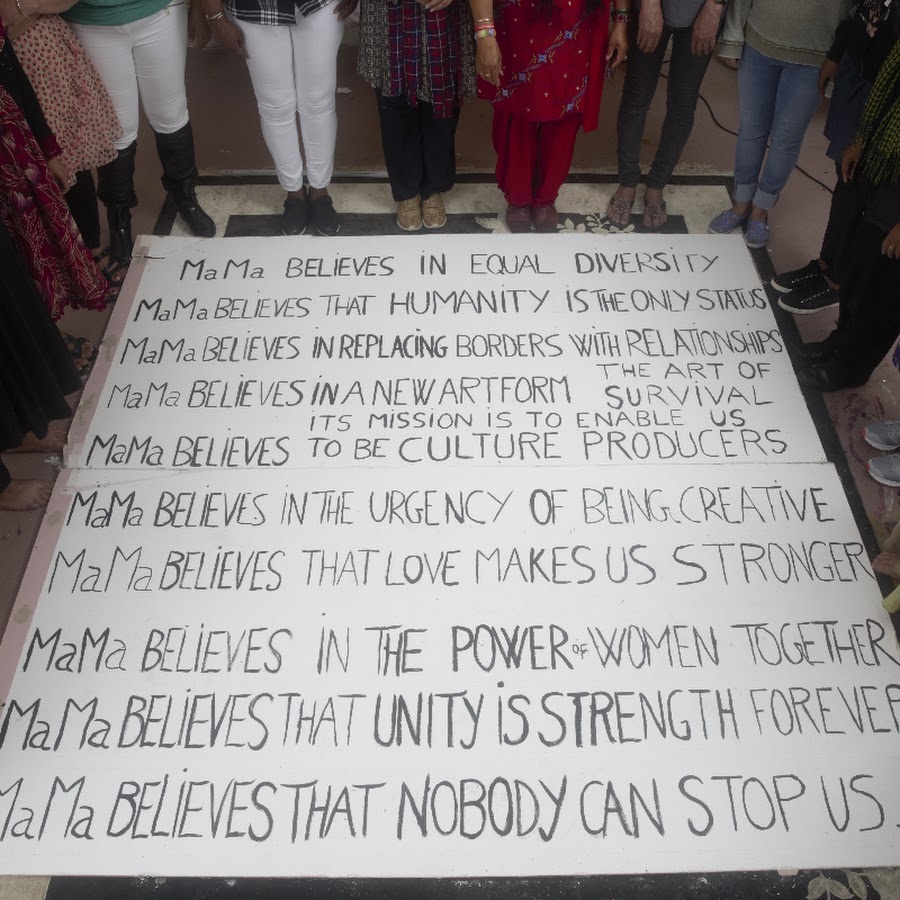 MaMa BELiEVES iN EQUAL DiVERSiTY
MaMa BELiEVES THAT HUMANiTY iS THE ONLY STATUS
MaMa BELiEVES iN REPLACiNG BORDERS WiTH RELATiONSHiPS
MaMa BELiEVES iN A NEW ART FORM THE ART OF SURViVAL
MaMa BELiEVES iTS MiSSiON iS TO ENABLE US TO BE CULTURE PRODUCERS
MaMa BELiEVES iN THE URGENCY OF BEiNG CREATiVE
MaMa BELiEVES THAT LOVE MAKES US STRONGER
MaMa BELiEVES iN THE POWER OF WOMEN TOGETHER
MaMa BELiEVES THAT UNiTY iS STRENGTH FOREVER
MaMa BELiEVES THAT NOBODY CAN STOP US.